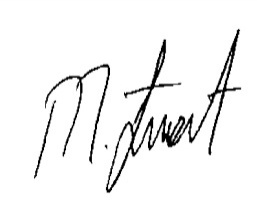 M. Stuart